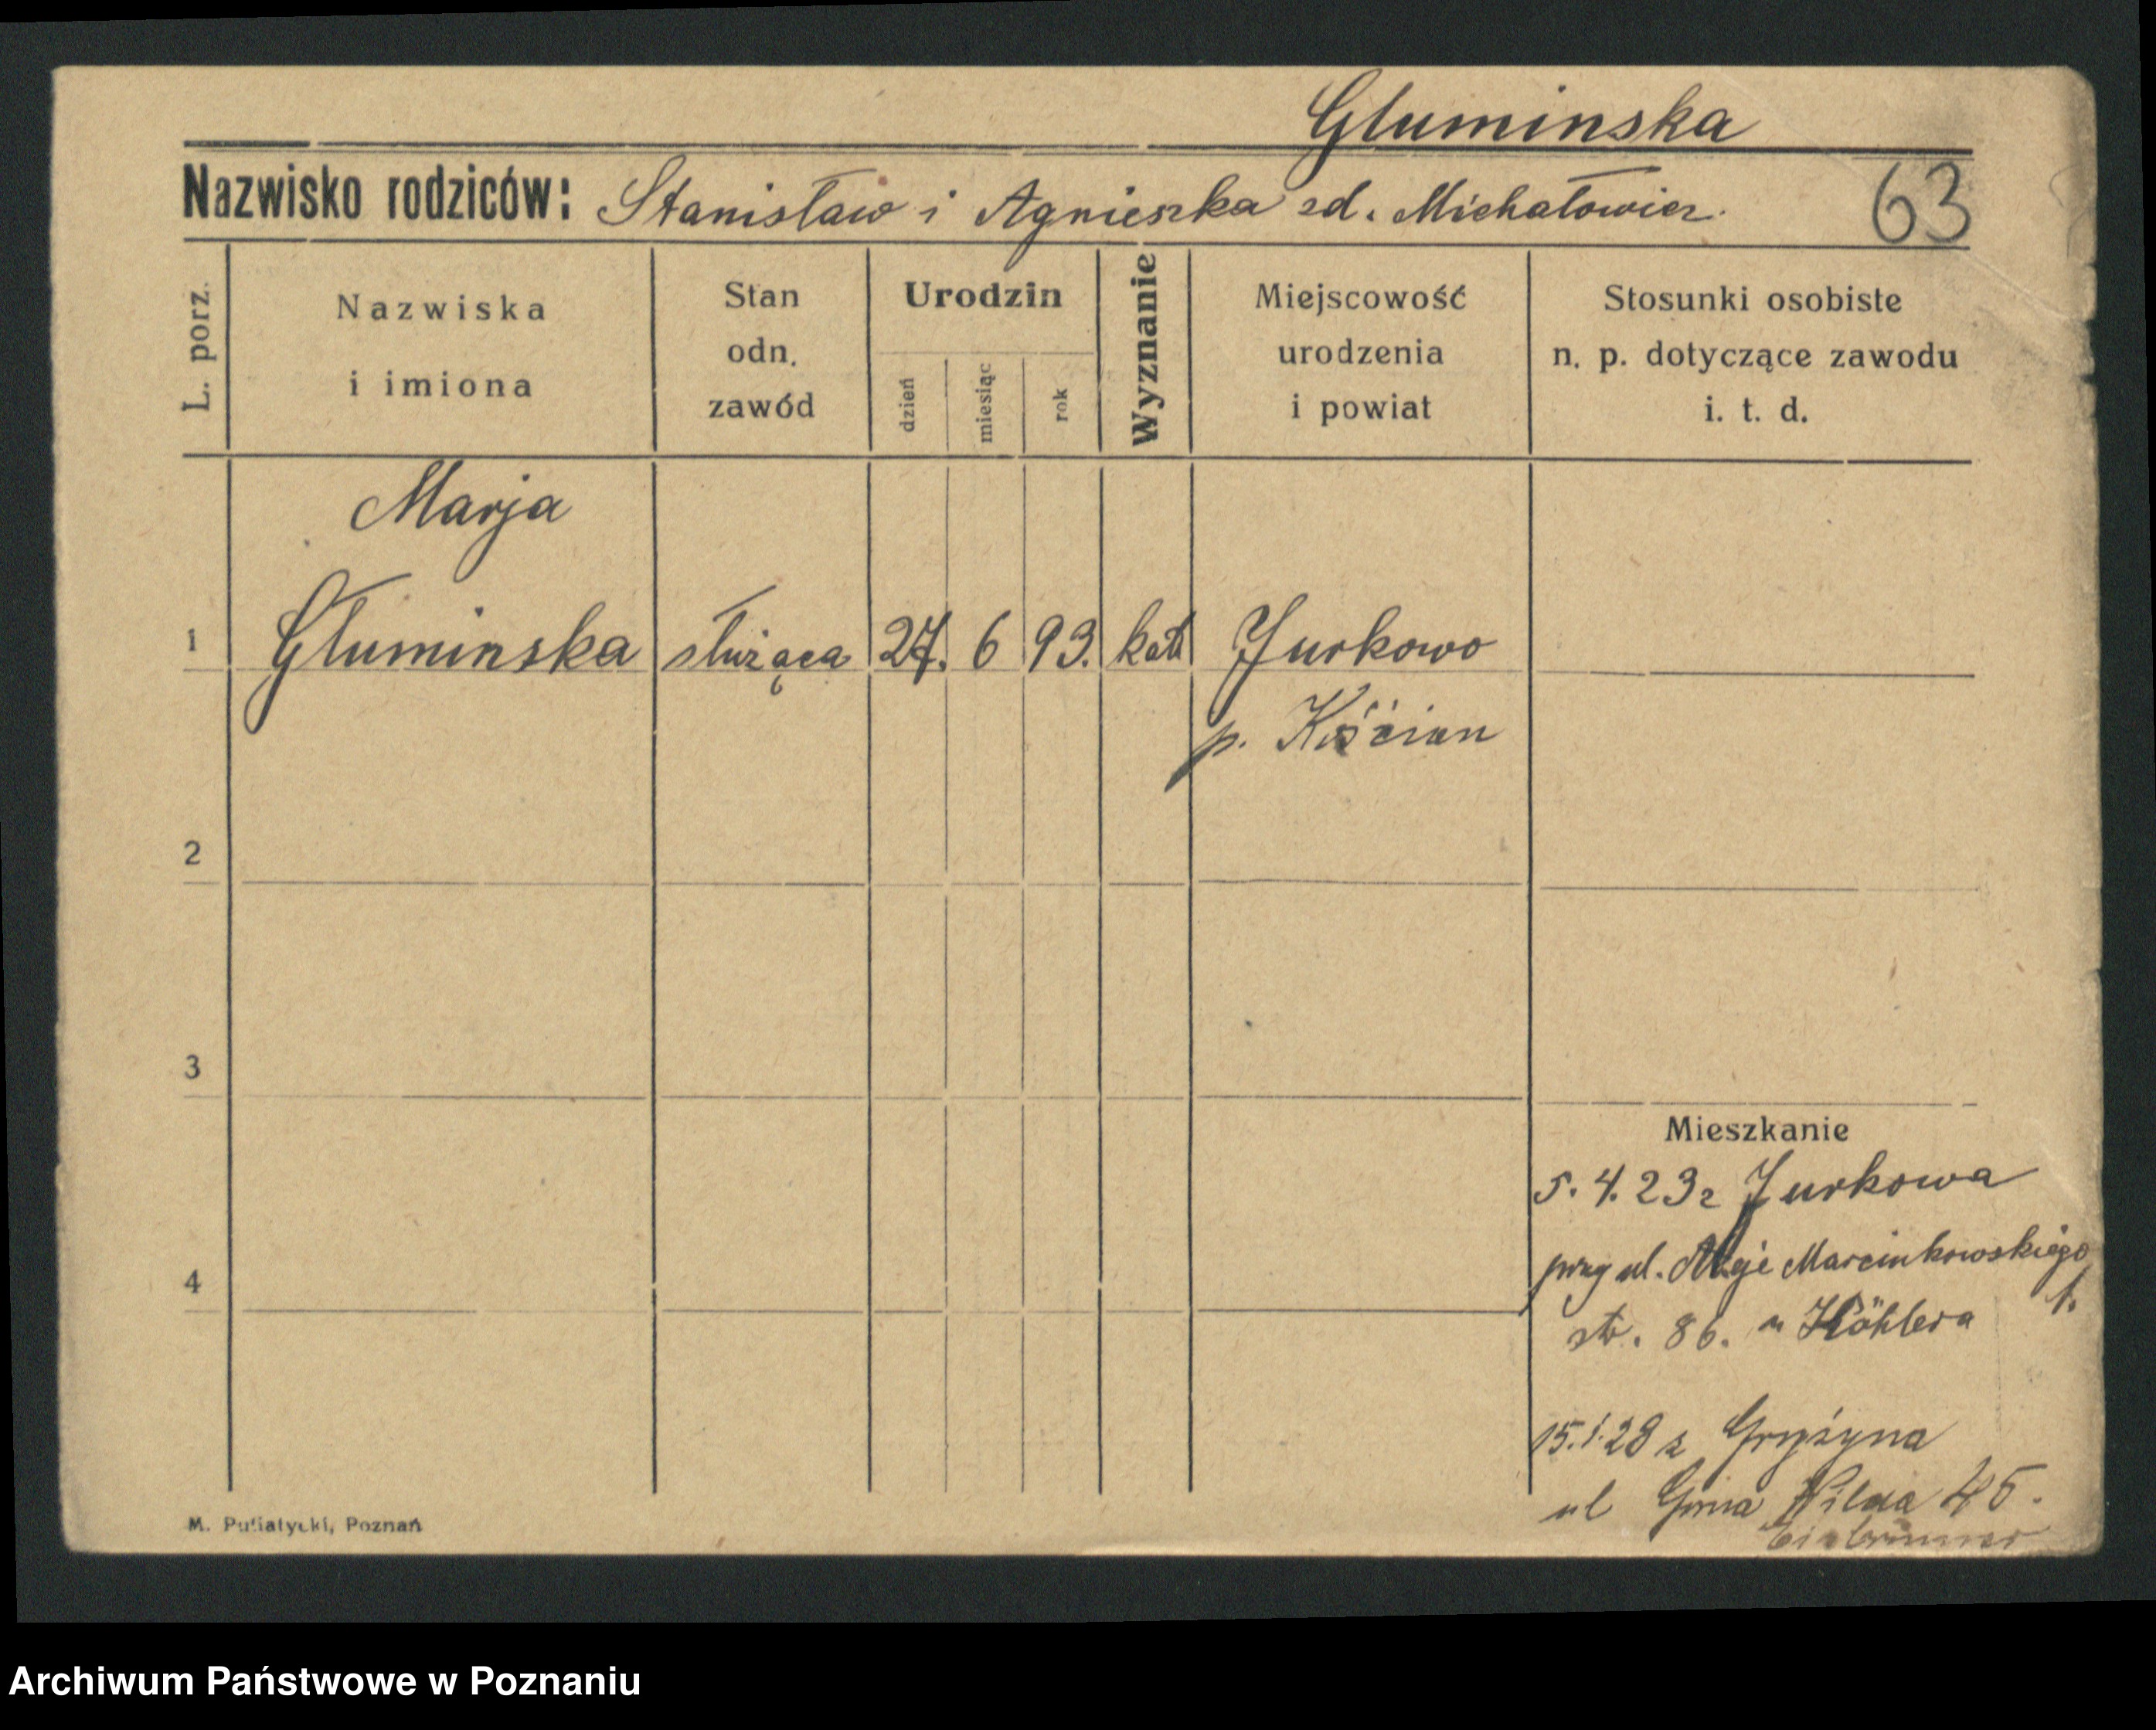 Gluminska
Nazwisko rodziców: Stanisław i Agnieszka zd. Michałowicz.
63
L. porz.
Nazwiska
i imiona
Stan
odn.
zawód
Urodzin
dzień
miesiąc
rok
Wyznanie
Miejscowość
urodzenia
i powiat
Stosunki osobiste
n. p. dotyczące zawodu
i. t. d.
Marja
1 Głuminska służąca 27. 6 93. kat Jurkowo
p. Kościan
2
3
4
Mieszkanie
5. 4. 23 z Jurkowa
przy ul. Aleje Marcinkowskiego
1.
str. 86. u Köhlera
15.1.28 z Gryżyna
ul Górna Wilda 45.
M. Putiatycki, Poznań
Archiwum Państwowe w Poznaniu